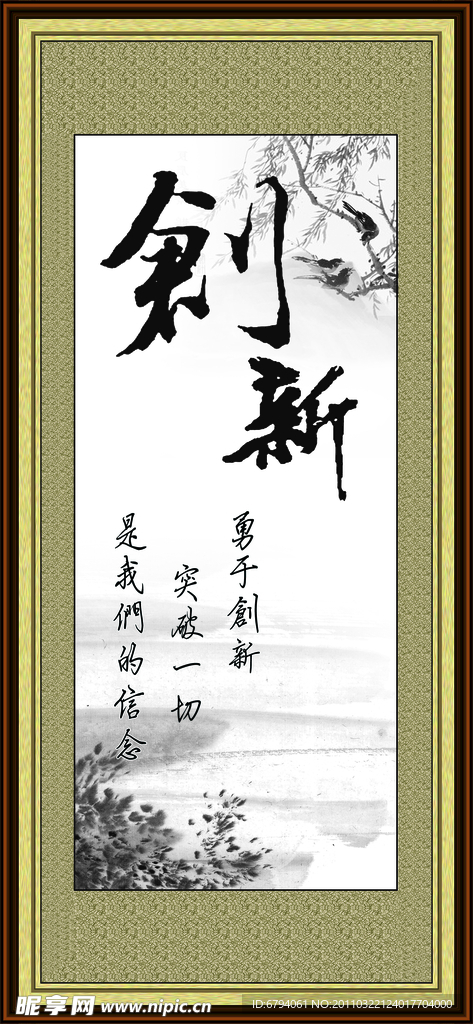 創新
勇于創新
突破一切
是我們的信念
昵享网 www.nipic.cn
ID:6794061 NO:20110322124017704000